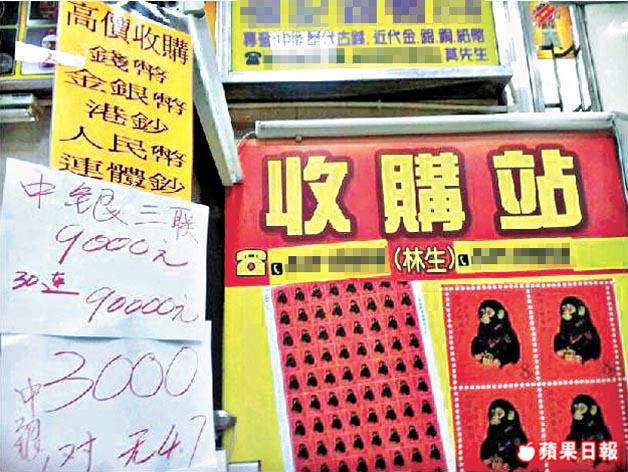 高價收購
錢幣
金銀幣
港鈔
人民幣
連體鈔
中銀三联
9000元
30连 90000元
3000
中銀 对 无4.7
歷代古錢,近代金,銀,銅,紙幣
莫先生
收購站
(林生)
8
8
蘋果日報